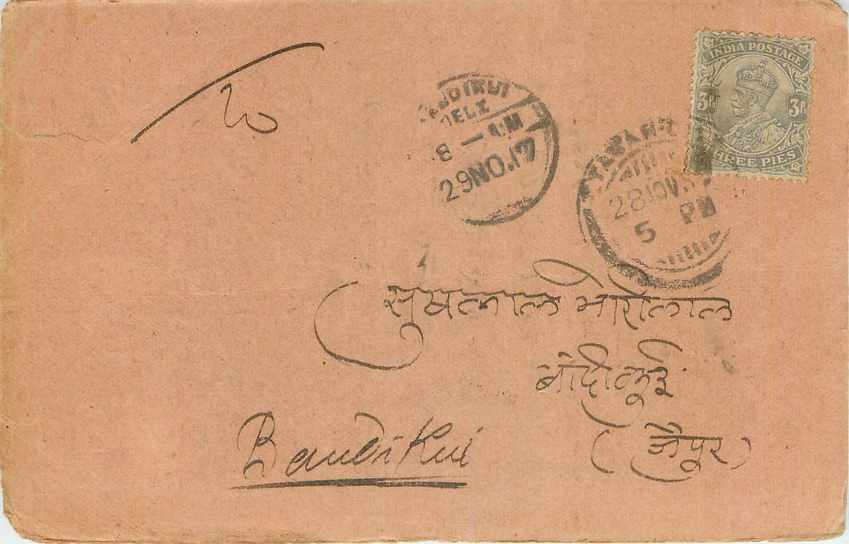 To
INDIA POSTAGE
3P 3P
THREE PIES
8 - AM
29 NO. 17
28 NOV
5 PM
सुखलाल भोरीलाल
बांदीकुई
(जैपूर)
Bandikui